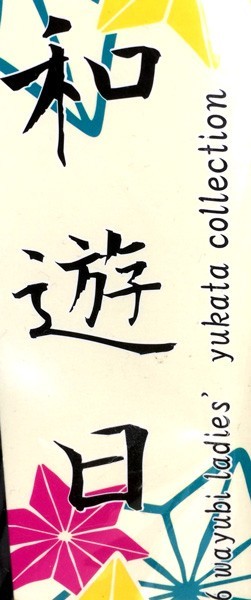 和遊日
6 wayubi ladies' yukata collection